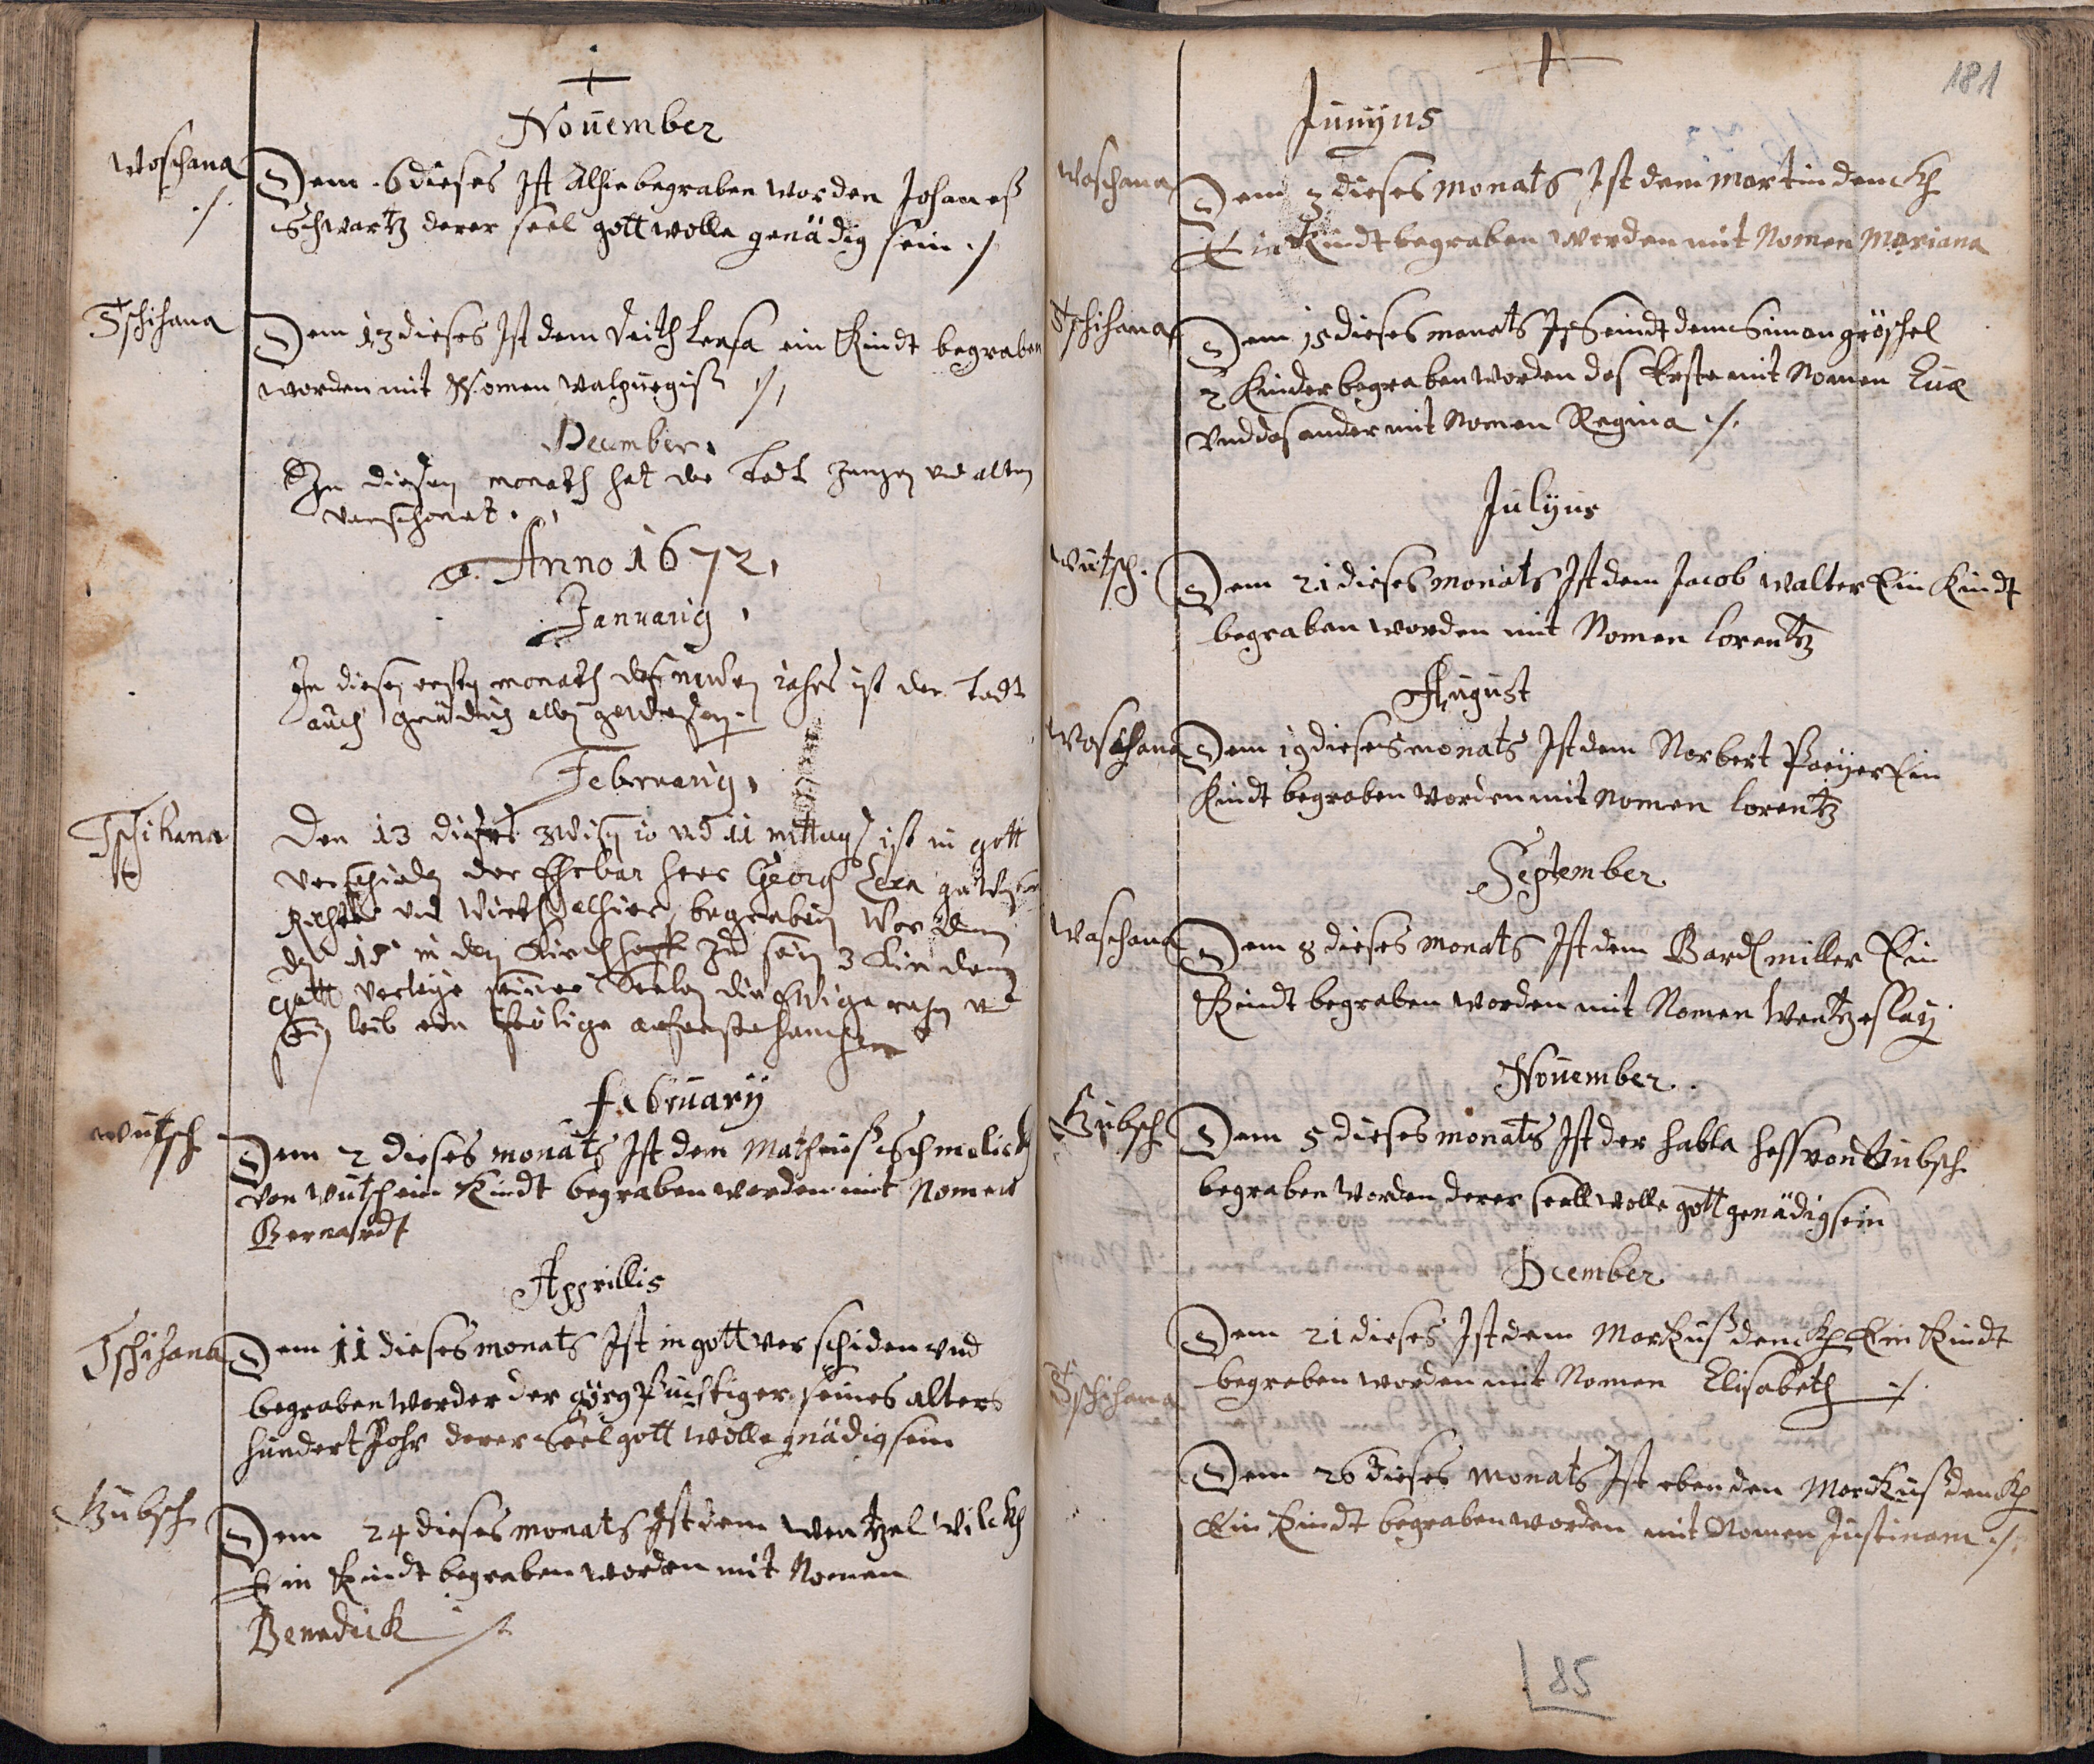 November
Woschana Dem 6 dieses Ist Alhie begraben worden Johaneß
./. Schwartz derer seel gott wolle genädig sein ./.
Tschihana Dem 13 dieses Ist dem Veith Lersa ein Kindt begraben
worden mit Nomen Walpurgiß ./.
December
In diesen monath hat der Todt Jungen vnd alten
verschonet.
Anno 1672
Januarij
In diesen ersten monath des neuen Jahrs ist der Todt
auch gnädig allen gewesen.
Februarij
Tschihana Den 13 dieses zwisch 10 vnd 11 mittag ist in gott
verschieden der Ehrbar herr Georg gewesener
Richter vnd Wirth alhier, begraben Worden
den 15 in den Kirchhoff zu sein 3 Kindern
Gott verleye seiner Seelen die Ewige ruhe vnd
leib ein fröliche
february
Wutsch Dem 2 dieses monats Ist dem Matheuß Schmelickh
von Wutsch ein Kindt begraben worden mit Nomen
Bernardt
Apprillis
Tschihana Dem 11 dieses monats Ist in gott verschiden vnd
begraben worden der görg seines alters
hundert Johr derer Seel gott wolle gnädig sein
Gubsch Dem 24 dieses monats Ist dem Wentzel Vilckh
Ein Kindt begraben worden mit Nomen
Benedick ./.
181
Junyus
Woschana Dem 3 dieses monats Ist dem martin denckh
Ein Kindt begraben worden mit Nomen Mariana
Tschihana Dem 15 dieses monats Seindt dem Simon gröschel
2 Kinder begraben worden das Erste mit Nomen Eua
vnd das ander mit Nomen Regina ./.
Julyus
Wutsch. Dem 21 dieses monats Ist dem Jacob Walter Ein Kindt
begraben worden mit Nomen Lorentz
August
Woschana Dem 19 dieses monats Ist dem Norbert Ein
Kindt begraben Worden mit Nomen Lorentz
September
Waschana Dem 8 dieses monats Ist dem Bardl miller Ein
Kindt begraben worden mit Nomen Wentzeslay
November.
Gubsch Dem 5 dieses monats Ist der habla heff von Gubsch
begraben Worden derer seell wolle gott genädig sein
Dcember
Dem 21 dieses Ist dem Markuß denckh Ein Kindt
Tschihana begraben worden mit Nomen Elisabeth ./.
Dem 26 dieses monats Ist eben den Marckuß denckh
Ein Kindt begraben worden mit Nomen Justinam ./.
85